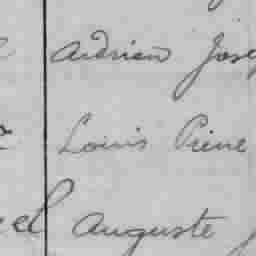 Adrien Jose
Louis Pierre
el Auguste J